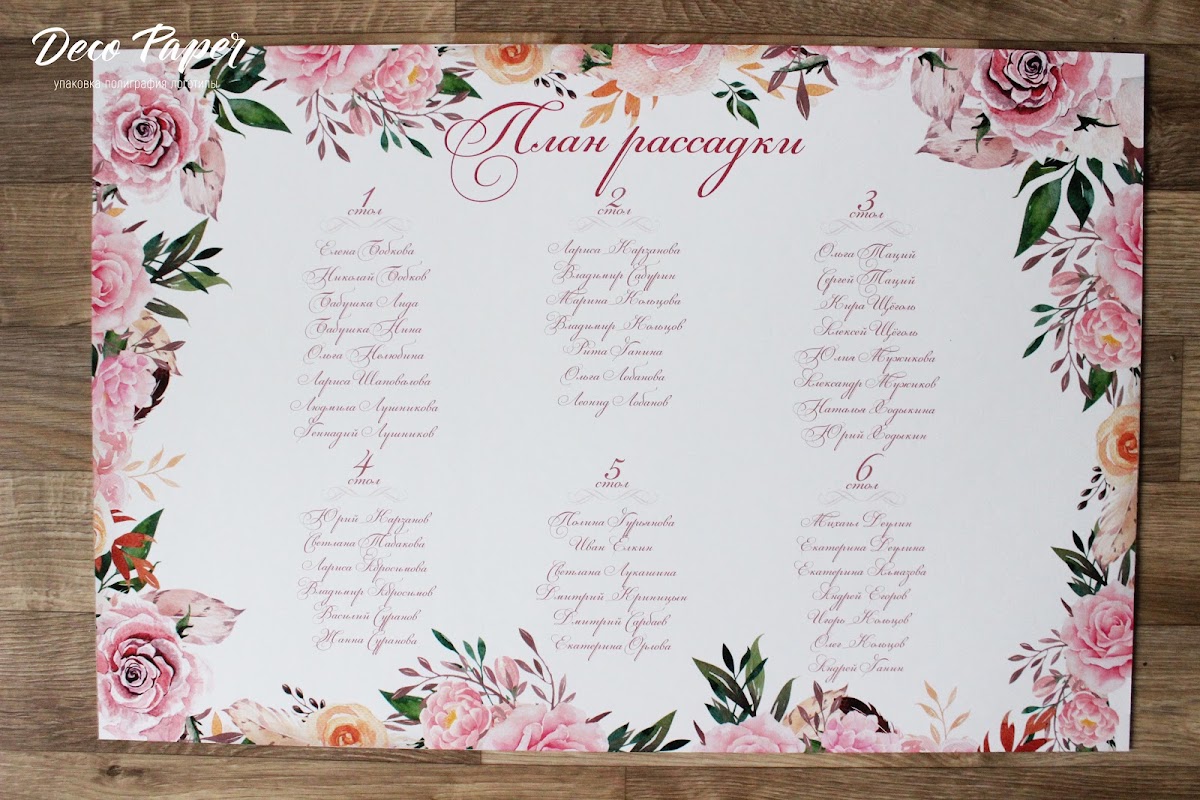 Deco Paper
упаковка полиграфия логотипы
План рассадки
1
стол
Елена Бобкова
Николай Бобков
Бабушка Лида
Бабушка Нина
Ольга Нелюбина
Лариса Шаповалова
Людмила Лушникова
Геннадий Лушников
2
стол
Лариса Карзанова
Владимир Сабурин
Марина Кольцова
Владимир Кольцов
Рита Ганина
Ольга Лобанова
Леонид Лобанов
3
стол
Ольга Таций
Сергей Таций
Кира Щёголь
Алексей Щёголь
Юлия Мужикова
Александр Мужиков
Наталья Ходыкина
Юрий Ходыкин
4
стол
Юрий Карзанов
Светлана Табакова
Лариса Абросимова
Владимир Абросимов
Василий Суранов
Жанна Суранова
5
стол
Полина Гурьянова
Иван Ёлкин
Светлана Лукашина
Дмитрий Криницын
Дмитрий Сарбаев
Екатерина Орлова
6
стол
Михаил Деулин
Екатерина Деулина
Екатерина Алмазова
Андрей Егоров
Игорь Кольцов
Олег Кольцов
Андрей Ганин